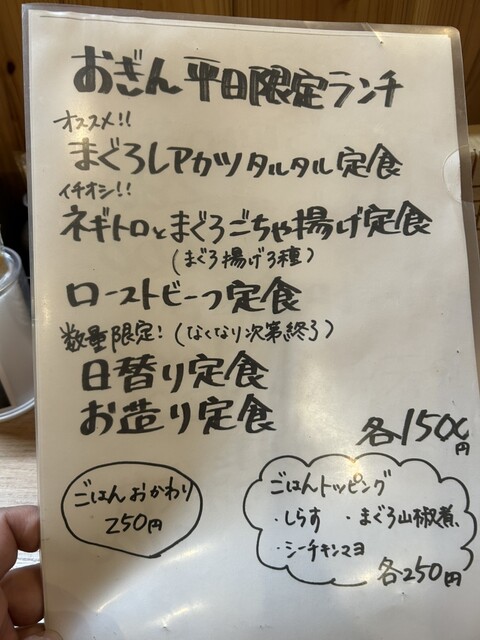 おぎん 平日限定ランチ
オススメ!!
まぐろレアカツタルタル定食
イチオシ!!
ネギトロとまぐろごちゃ揚げ定食
(まぐろ揚げ3種)
ローストビーフ定食
数量限定!(なくなり次第終了)
日替り定食
お造り定食
各1500円
ごはんおかわり
250円
ごはんトッピング
・しらす ・まぐろ山椒煮、
・シーチキンマヨ
各250円